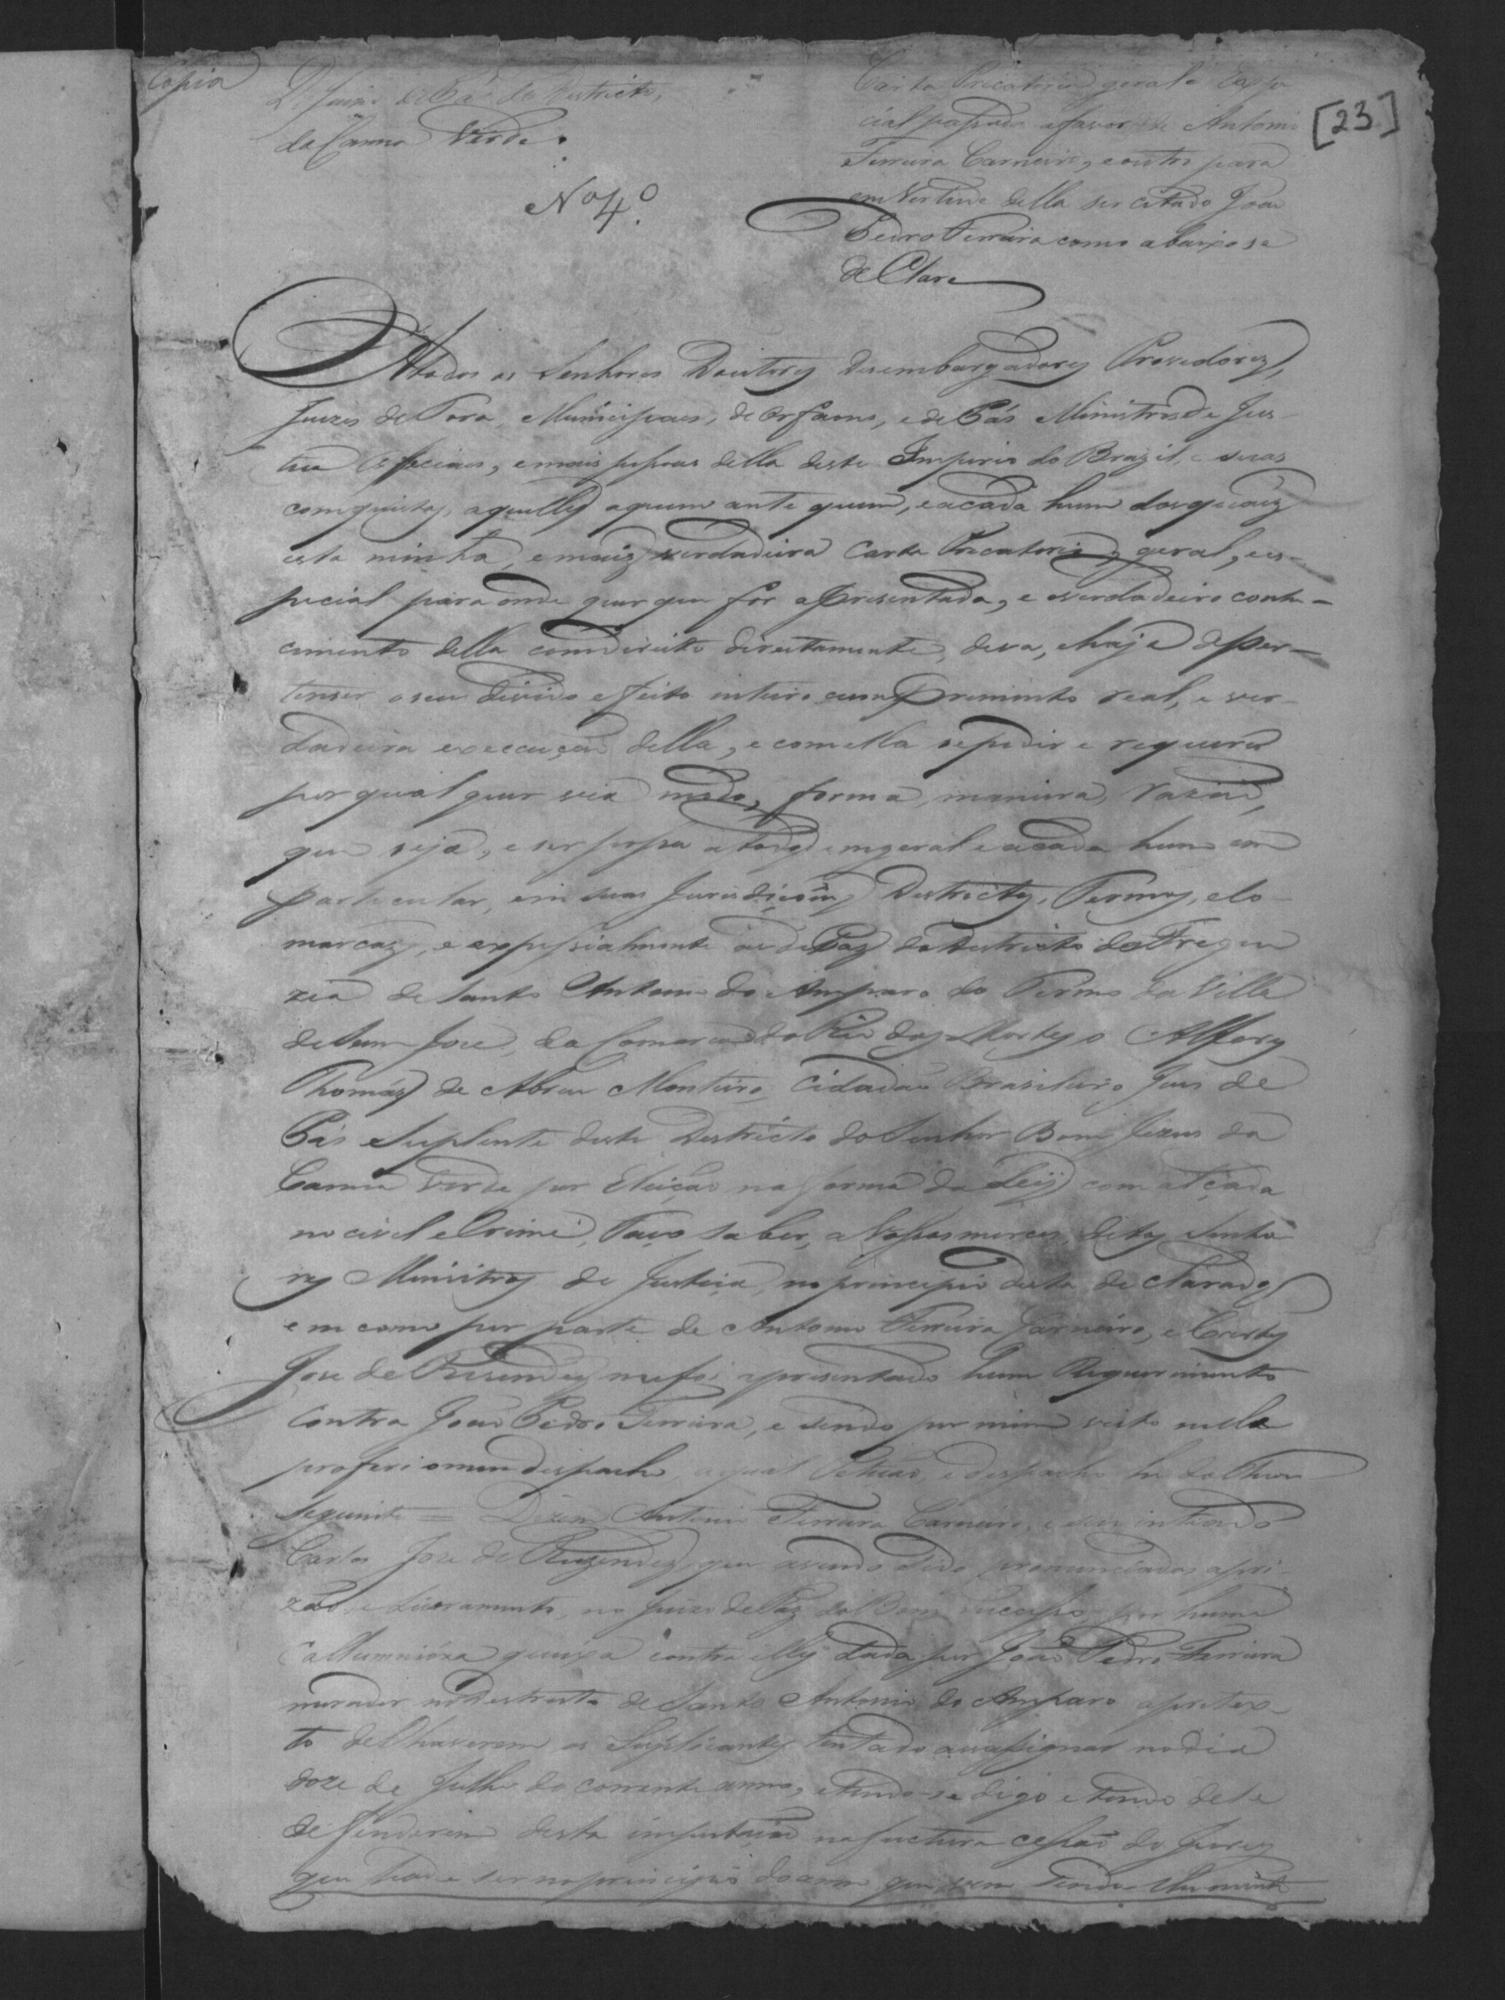 Copia
D. Juizo de Pás do Districto,
da Canna Verde.
Nº 4º
[23]
Carta Precatoria geral e Espe
cial passada a favor de Antonio
Ferreira Carneiro, e outro para
em Vertude della ser citado Joao
Pedro Ferreira como abaixo se
de Clara
A todos os Senhores Doutores Desembargadores Provedores,
Juizes de Fora, Municipaes, de orfaons, e de Pás Ministros de Jus-
tiça Officiaes, e mais pessoas della deste Imperio do Brazil, e suas
comquistas, aquelles aquem ante quem, e acada hum dos quaiz
esta minha, e maiz verdadeira Carta Precatoria, geral, e es-
pecial para onde quer que for apresentada, e o verdadeiro conhe-
cimento della com direito directamente, deva, e haja deper-
tenser o seu divido effeito inteiro cumprimento real, e ver-
dadeira execução della, e com ella se pedir e requerer
por qual quer via modo, forma, maniera, razaõ,
que seja, e ser possa a todos em geral e acada hum em
particular, em suas Jurisdiçoins Districtos, Termos, e Co-
marcaz, e expessialmente ao de Paz do Destricto da Fregue
zia de Santo Antonio do Amparo do Termo da Villa
de Sam Joze, da Comarca do Rio das Mortes o Alferes
Thomaz de Abreu Monteiro Cidadaõ Brasileiro Juis de
Pás Suplente deste Destricto do Senhor Bom Jezus da
Canna Verde por Eleição na forma da Ley com alçada
no civel e Crime, Faço saber, a Vossas merces ditos Senho
res Ministros de Justiça, no principio desta de Clarados
em como por parte de Antonio Ferreira Carneiro, e Carlos
Jose de Rezendes me foi apresentado hum Requerimento
contra Joaõ Pedro Ferreira, e sendo por mim visto nella
proferi o meu despacho, a qual Petiçaõ, e despacho he do theor
seguinte = Dizem Antonio Ferreira Carneiro, e seu intiado
Carlos Joze de Rezendes, que avendo sido pronunciados apri-
zaõ, e Livramento, no Juizo de Paz do Bom Sucesso por huma
Callumnioza queixa contra elles dada por Joaõ Pedro Ferreira
morador no destricto de Santo Antonio do Amparo apretex-
to de lhaverem os Suplicantes tentado assassignar no dia
doze de Julho do corrente anno, e tendo-se digo e tendo de se
defenderem desta imputação na fuctura cessaõ do Jures
que hade ser no principio do anno que vem